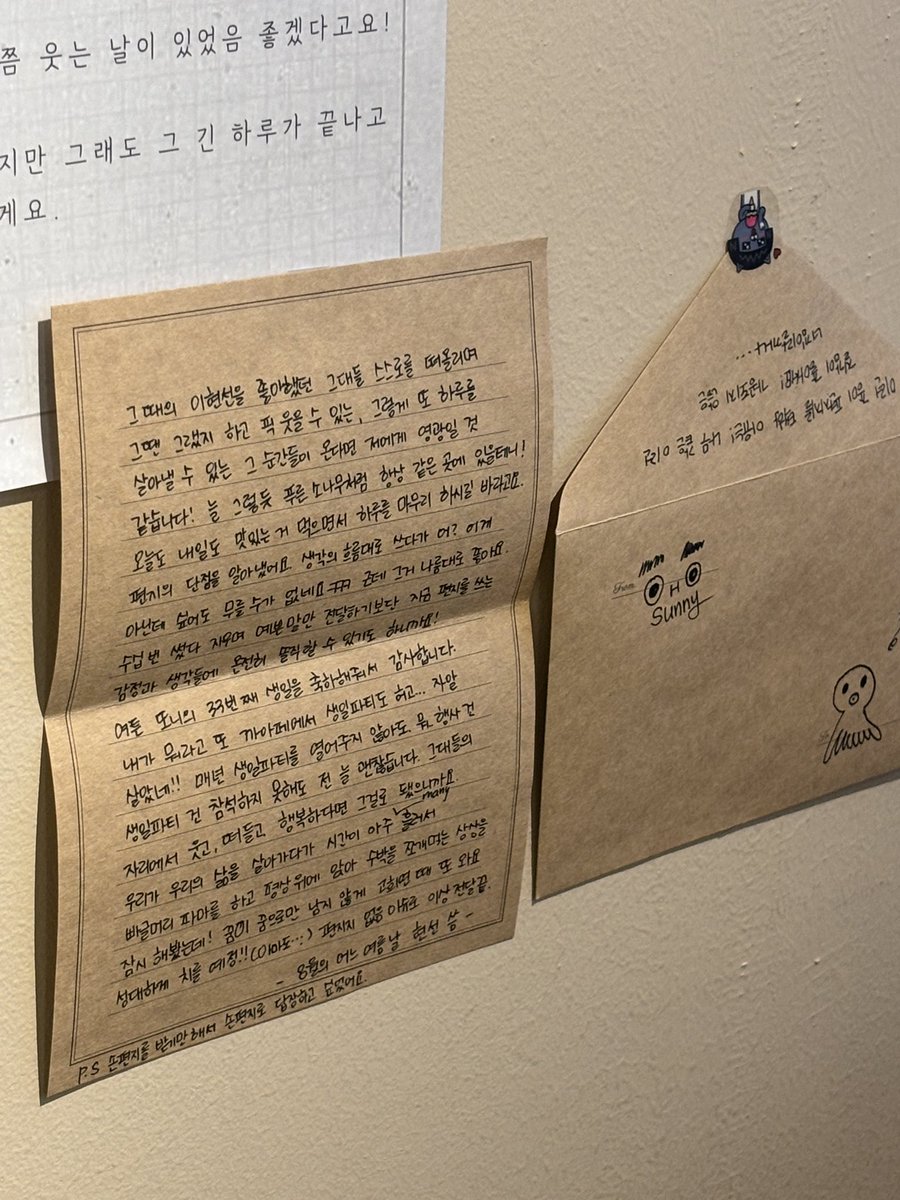 쯤 웃는 날이 있었음 좋겠다고요!
지만 그래도 그 긴 하루가 끝나고
게요.
그때의 이현선을 좋아했던 그대들 스스로를 떠올리며
그땐 그랬지 하고 픽 웃을 수 있는, 그렇게 또 하루를
살아낼 수 있는 그 순간들이 온다면 저에게 영광일 것
같습니다! 늘 그렇듯 푸른 소나무처럼 항상 같은 곳에 있을테니!
오늘도 내일도 맛있는 거 먹으면서 하루를 마무리 하시길 바라고요.
편지의 단점을 알아냈어요. 생각의 흐름대로 쓰다가 어? 이게
아닌데 싶어도 무를 수가 없네요ㅠㅠ 근데 그거 나름대로 좋아요.
수십번 썼다 지우며 예쁜 말만 전달하기보단 지금 편지를 쓰는
감정과 생각들에 온전히 솔직할 수 있기도 하니까요!
여튼 또니의 33번째 생일을 축하해줘서 감사합니다.
내가 뭐라고 또 까아페에서 생일파티도 하고... 자알
살았네!! 매년 생일파티를 열어주지 않아도 뭐, 행사 건
생일파티 건 참석하지 못해도 전 늘 괜찮습니다. 그대들의
자리에서 웃고, 떠들고, 행복하다면 그걸로 됐으니까요.
many
우리가 우리의 삶을 살아가다가 시간이 아주 흘러서
빠글머리 파마를 하고 평상 위에 앉아 수박을 쪼개먹는 상상을
잠시 해봤는데! 꿈이 꿈으로만 남지 않게 고희연 때 또 와요
성대하게 치를 예정!! (아마도...) 편지지 없음 이슈로 이상 전달 끝.
- 8월의 어느 여름날 현선 씀 -
P.S 손편지를 받기만 해서 손편지로 답장하고 싶었어요.
너무이르쎄...
From
H
Sunny